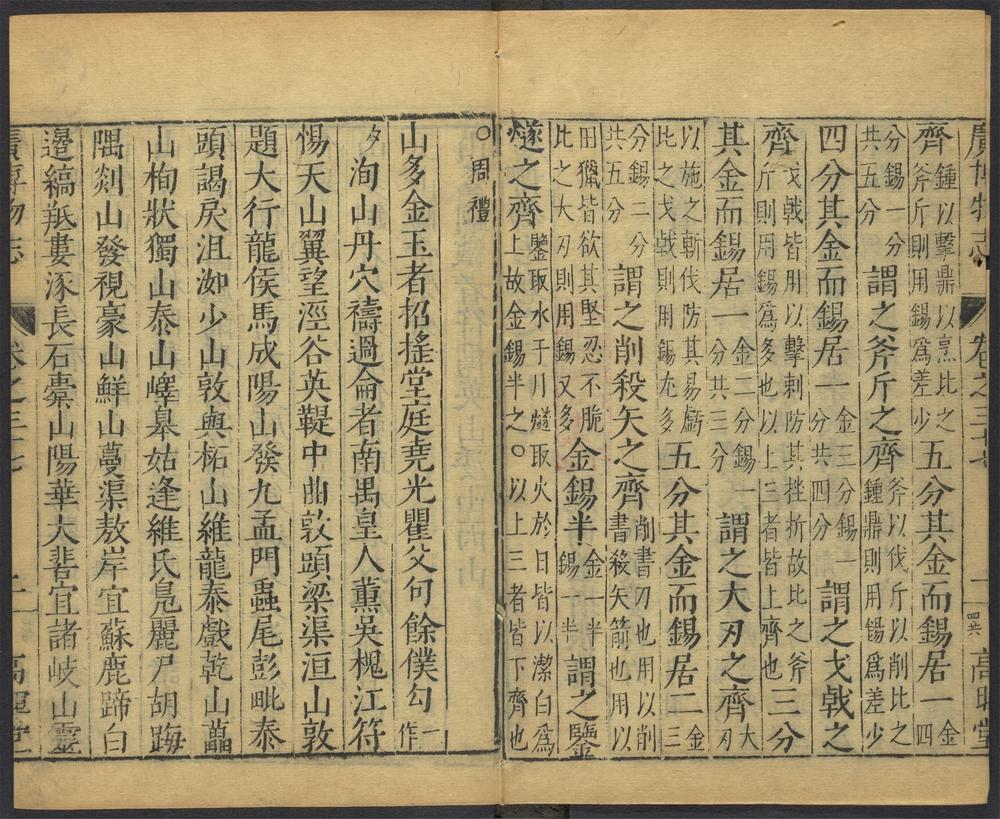 廣博物志 卷之三十七 一 四六 高暉堂
齊鍾以擊鼎以烹比之斧斤則用錫爲差少五分其金而錫居一金四
分錫一分共五分謂之斧斤之齊斧以伐斤以削比之鍾鼎則用錫爲差少
四分其金而錫居一金三分錫一分共四分謂之戈戟之
齊戈戟皆用以擊刺防其挫折故比之斧斤則用錫爲多也以上三者皆上齊也三分
其金而錫居一金二分錫一分共三分謂之大刃之齊大刃
以施之斬伐防其易虧比之戈戟則用錫尢多五分其金而錫居二金三
分錫二分共五分謂之削殺矢之齊削書刃也用以削書殺矢箭也用以
田獵皆欲其堅忍不脆比之大刃則用錫又多金錫半金一半錫一半謂之鑒
燧之齊鑒取水于川燧取火於日皆以潔白爲上故金錫半之○以上三者皆下齊也
○周禮
山多金玉者招搖堂庭堯光瞿父句餘僕勾一作
夕洵山丹穴禱過侖者南禺皇人薰吳槐江符
惕天山翼望涇谷英鞮中曲敦頭梁渠洹山敦
題大行龍侯馬成陽山發九孟門蟲尾彭毗泰
頭謁戾沮洳少山敦與柘山維龍泰戲乾山藟
山栒狀獨山泰山嶧皋姑逢維氏鳧麗尸胡踇
隅剡山發視豪山鮮山蔓渠敖岸宜蘇鹿蹄白
邊縞羝婁涿長石橐山陽華大𩇯宜諸岐山靈
廣博物志 卷之三十七 二 高暉堂